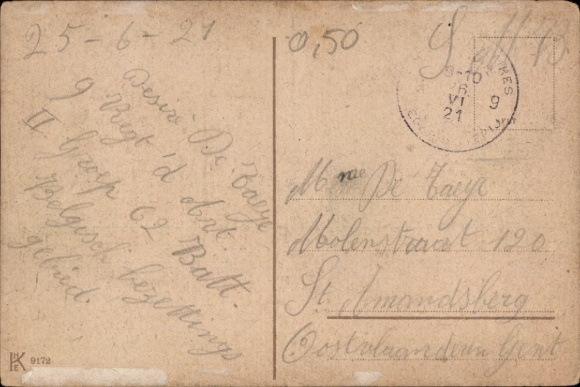 25-6-21
0,50
S. M. B.
9-10
VI
21
9
Desiré De Taeye
9 Regt 'd Art.
II Groep 62 Batt.
Belgisch bezettings
gebied.
Mme De Taeye
Molenstraat 120
St. Amandsberg
Oostvlaanderen Gent
9172